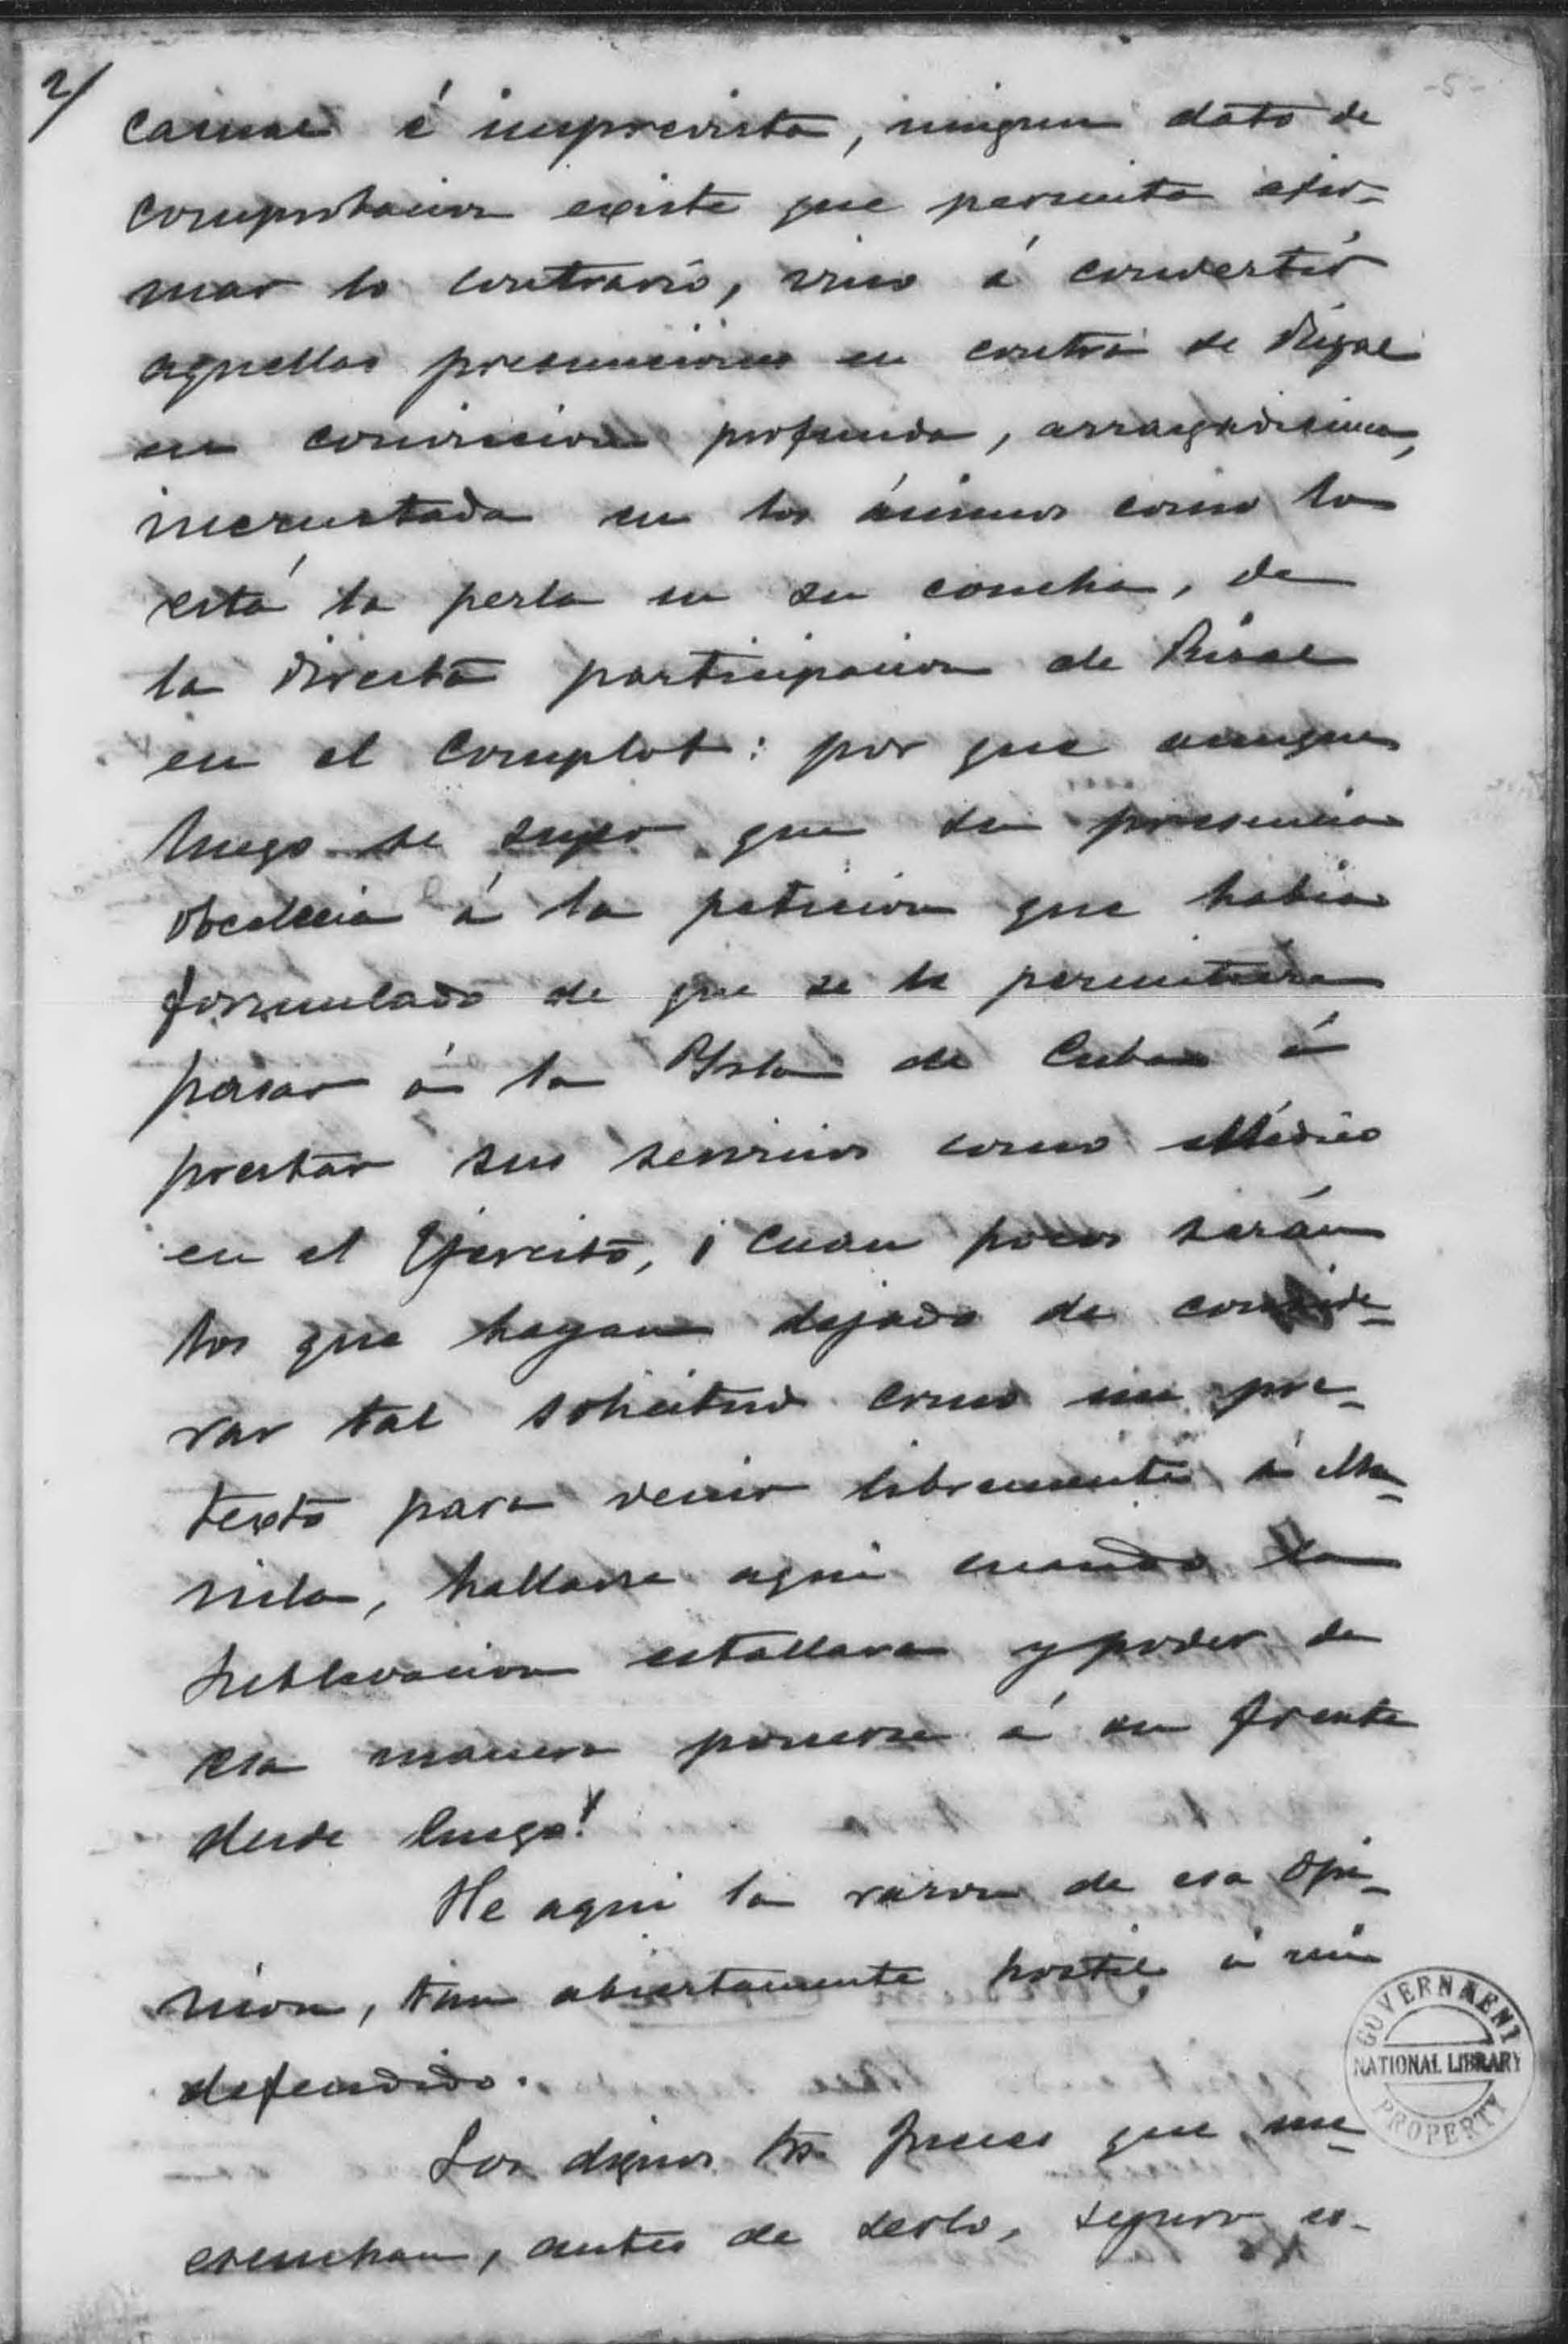 2/
casual é imprevista, ningun dato de
comprobacion existe que permita afir-
mar lo contrario, vino á convertir
aquellas presunciones en contra de Rizal
en conviccion profunda, arraigadisima,
incrustada en los ánimos como lo
está la perla en su concha, de
la directa participacion de Rizal
en el complot: por que aunque
luego se supo que su presencia
obedecia á la peticion que habia
formulado de que se le permitiera
pasar á la Isla de Cuba á
prestar sus servicios como Médico
en el Ejercito, ¡cuan pocos serán
los que hayan dejado de conside-
rar tal solicitud como un pre-
texto para venir libremente á Ma-
nila, hallarse aqui cuando la
sublevacion estallara y poder de
esa manera ponerse á su frente
desde luego!
He aqui la razon de esa opi-
nion, tan abiertamente hostil á mi
defendido.
Los dignos Sres. Jueces que me
escuchan, antes de serlo, seguro es-
GOVERNMENT
NATIONAL LIBRARY
PROPERTY